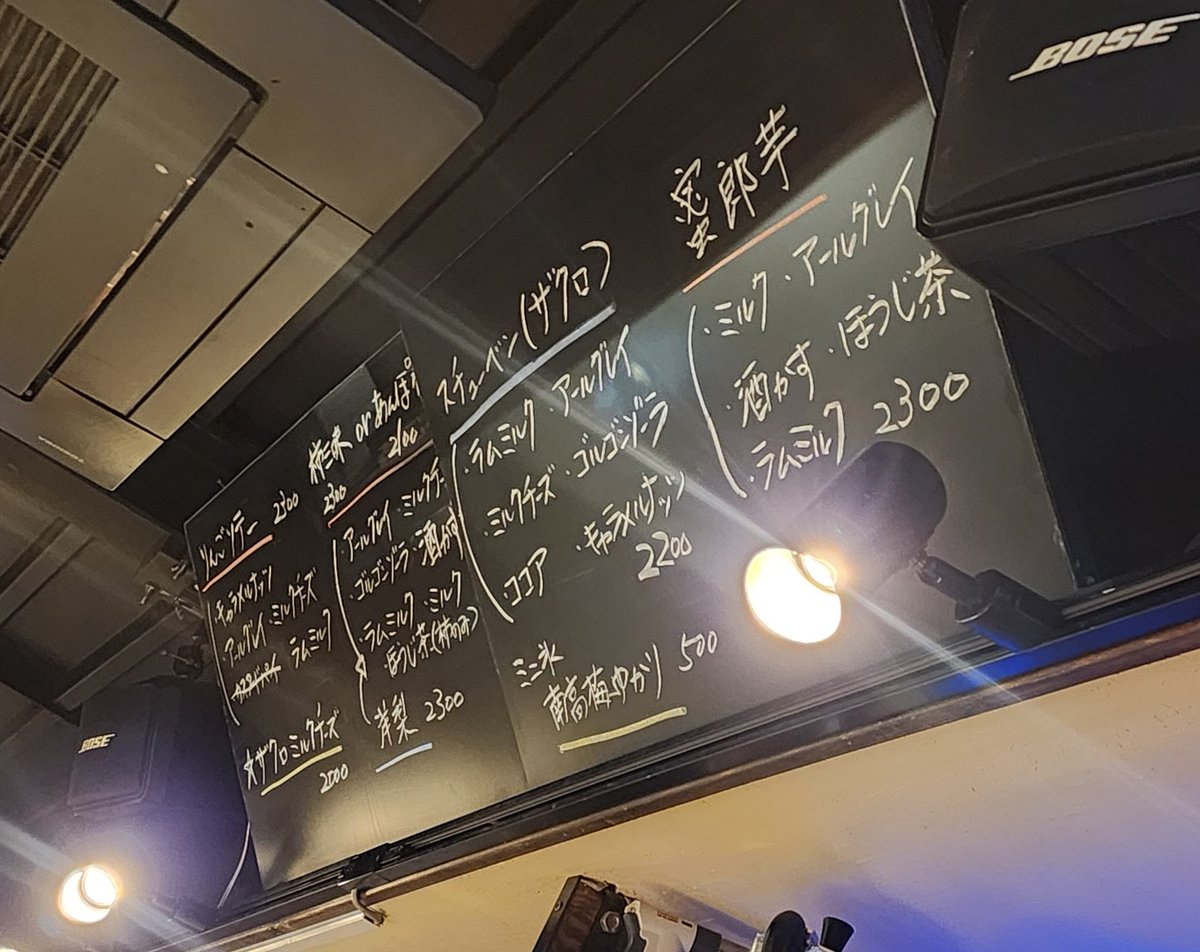 りんごソテー 2300
・キャラメルナッツ
アールグレイ・ミルクチーズ
カスタードパイ ラムミルク
☆ザクロミルクチーズ
2000
or あんぽ
2300 2100
アールグレイ・ミルクティー
ゴルゴンゾーラ・酒かす
・ラムミルク・ミルク
ほうじ茶(柿のみ)
洋梨 2300
スチューベン(ザクロ)
・ラムミルク・アールグレイ
・ミルクチーズ・ゴルゴンゾーラ
・ココア ・キャラメルナッツ
2200
ミニ氷
南高梅ゆかり 500
蜜郎芋
・ミルク・アールグレイ
・酒かす・ほうじ茶
・ラムミルク 2300
BOSE
BOSE